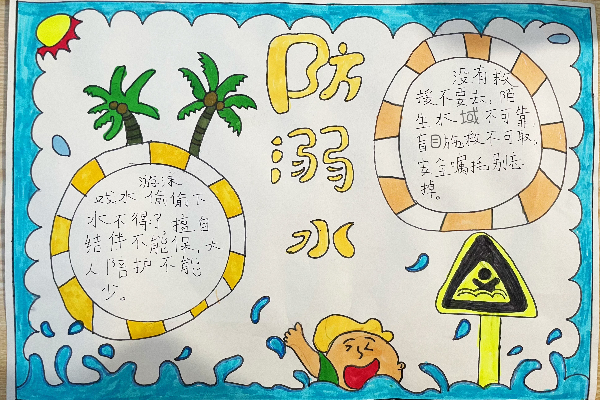 防
溺
水
游泳
戏水偷偷下
水不得了擅自
结伴不能保,大
人陪护不能
少。
没有救
援不要去,陌
生水域不可靠
盲目施救不可取,
安全嘱托别忘
掉。